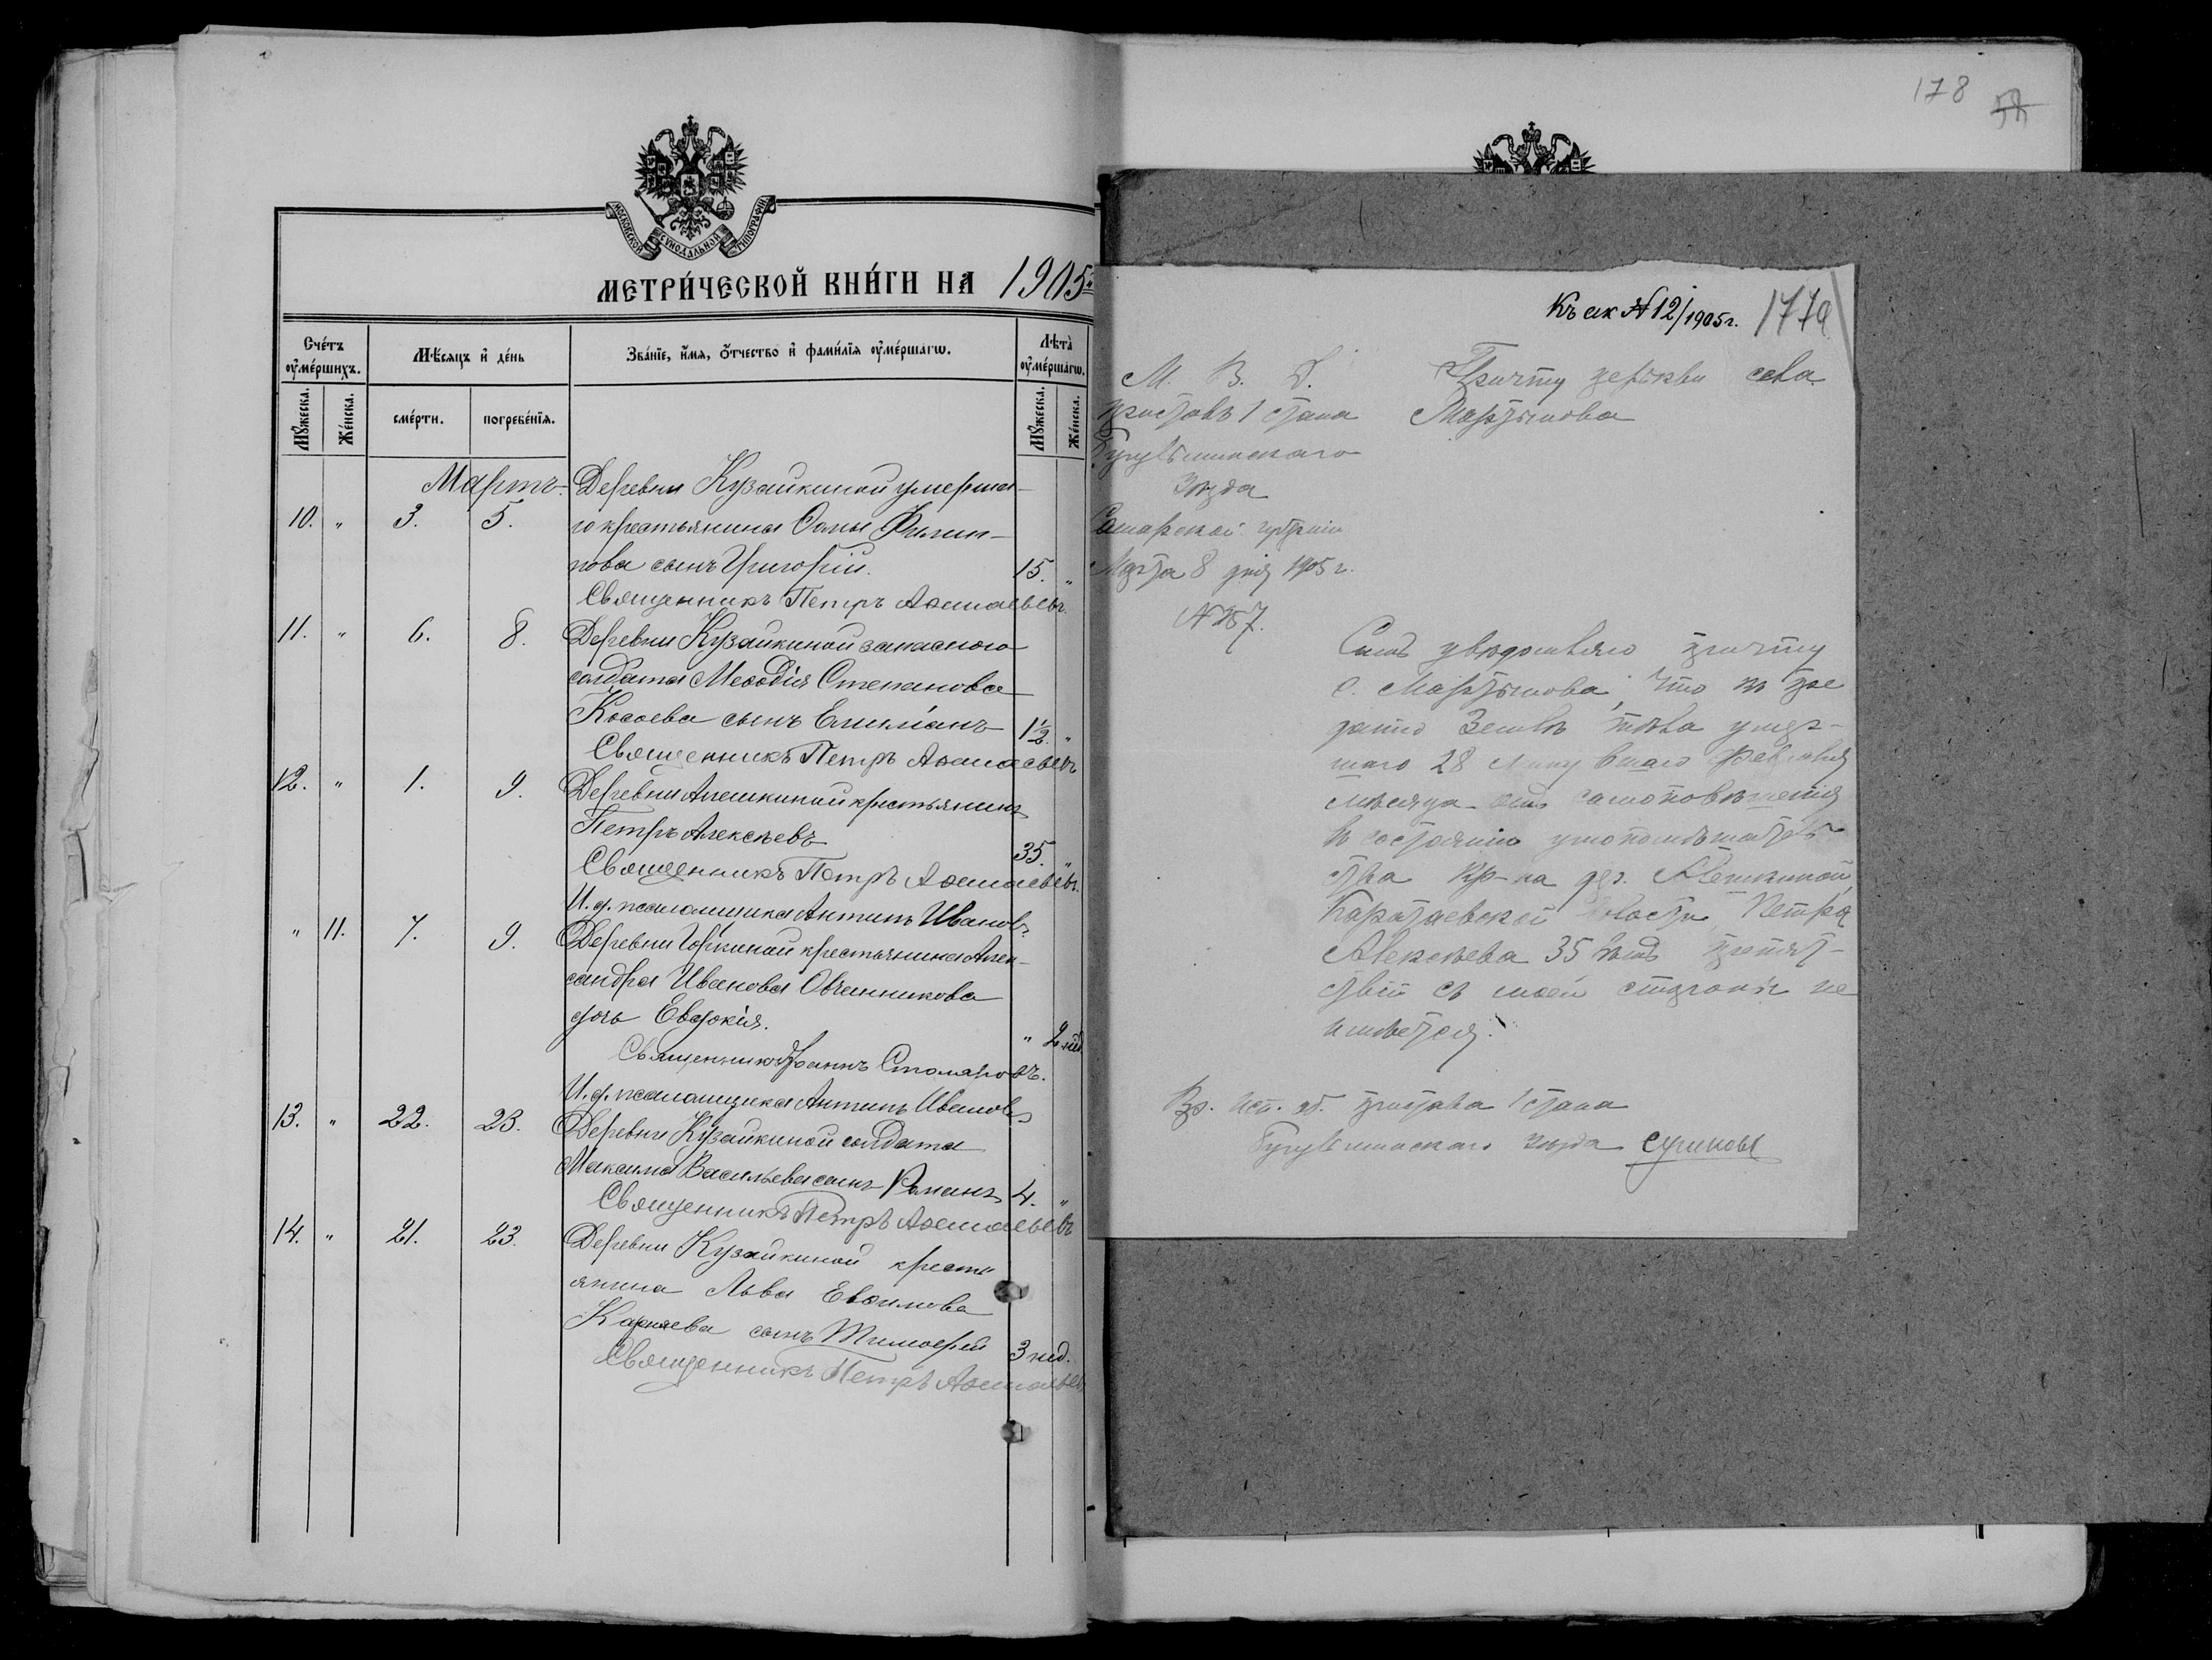 178
МОСКОВСКОЙ СѴНОДАЛЬНОЙ ТИПОГРАФІИ
МЕТРИ́ЧЕСКОЙ КНИ́ГИ НА 1905
Сче́тъ ᲂу҆ме́ршихъ.
Мѣ́сяцъ и҆ де́нь
Зва́нїе, и҆́мя, ѻ҆́тчество и҆ фами́лїя ᲂу҆ме́ршагѡ.
Лѣта̀ ᲂу҆ме́ршагѡ.
Мꙋ́жеска.
Же́нска.
сме́рти.
погребе́нїѧ.
Мꙋ́жеска.
Же́нска.
Мартъ. Деревни Кузайкиной умерша-
10. " 3. 5. го крестьянина Ѳомы Филип-
пова сынъ Григорій. 15. "
Священникъ Петръ Аѳанасьевъ.
11. " 6. 8. Деревни Кузайкиной запаснаго
солдата Меѳодія Степанова
Косоева сынъ Емиліанъ 1½. "
Священникъ Петръ Аѳанасьевъ
12. " 1. 9. Деревни Алешкиной крестьянинъ
Петръ Алексѣевъ 35. "
Священникъ Петръ Аѳанасьевъ.
И. д. псаломщика Антипъ Ивановъ.
" 11. 7. 9. Деревни Горкиной крестьянина Алек-
сандра Иванова Овчинникова
дочь Евдокія. " 2 нед.
Священникъ Іоаннъ Столяровъ.
И. д. псаломщика Антипъ Ивановъ
13. " 22. 23. Деревни Кузайкиной солдата
Максима Васильева сынъ Романъ 4. "
Священникъ Петръ Аѳанасьевъ
14. " 21. 23. Деревни Кузайкиной кресть
янина Льва Евѳимова
сынъ Тимоѳей 3 нед.
Священникъ Петръ Аѳанасьевъ
Къ ак № 12/1905 г. 177а
М. В. Д.
Приставъ 1 стана
Бугульминскаго
Уѣзда
Самарской губерніи
Марта 8 дня 1905 г.
№ 257.
Причту церкви села
Мартынова
Симъ увѣдомляю причту
с. Мартынова, что къ пре
данію Землѣ тѣла умер-
шаго 28 минувшаго Февраля
мѣсяца отъ самоповѣшенія
въ состояніи умопомѣшатель
ства кр-на дер. Алешкиной,
Каратаевской волости, Петра
Алексѣева 35 лѣтъ препят-
ствій съ моей стороны не
имѣется.
Вр. исп. об. пристава 1 стана
Бугульминскаго уѣзда